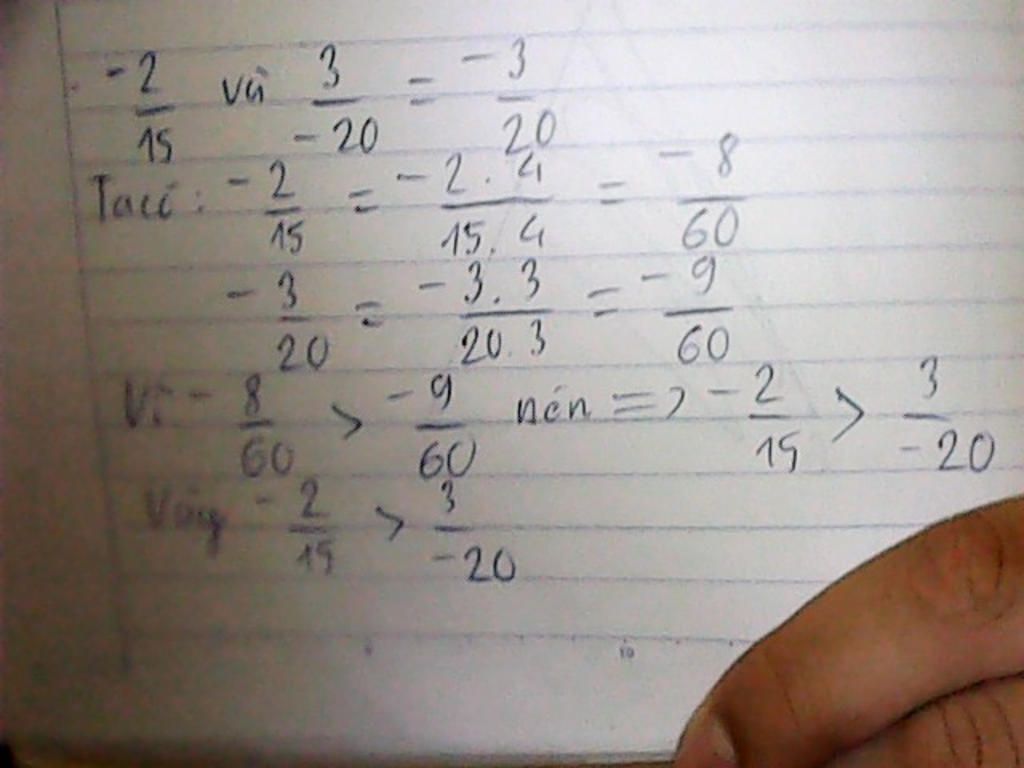 -2/15 và 3/-20 = -3/20
Ta có: -2/15 = -2.4/15.4 = -8/60
-3/20 = -3.3/20.3 = -9/60
Vì -8/60 > -9/60 nên => -2/15 > 3/-20
Vậy -2/15 > 3/-20
10